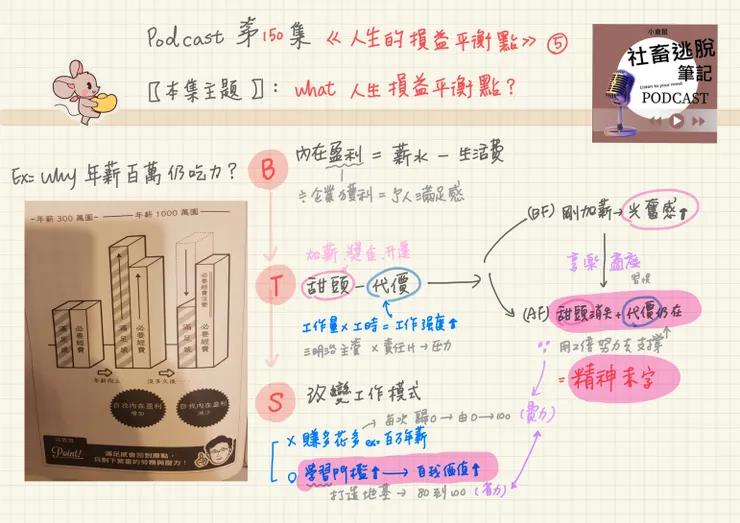 Podcast 第150集《人生的損益平衡點》⑤
小倉鼠
社畜逃脫
筆記
Listen to your mind
PODCAST
〖本集主題〗：what 人生損益平衡點？
Ex= why 年薪百萬仍吃力？
B 內在盈利 = 薪水 - 生活費
≒企業獲利 = 個人滿足感
年薪300萬圓
年薪1000萬圓
滿足感
必要經費
滿足感
必要經費
滿足感
必要經費
必要經費沒變
年薪向上
沒多久後…
自我內在盈利
增加
自我內在盈利
減少
Point!
滿足感會回到原點，
只剩下繁重的勞務與壓力！
加薪、獎金、升遷
T 甜頭 - 代價
工作量 × 工時 = 工作強度↑
主管 × 責任↑→壓力
(BF) 剛加薪→興奮感↑
享樂
習慣
(AF) 甜頭消失 + 代價仍在
用2倍努力去支撐
= 精神赤字
S 改變工作模式
每次歸0→由0→100 (費力)
× 賺多花多 ex=百萬年薪
○ 學習門檻↑→自我價值↑
打造地基→80到100 (省力)